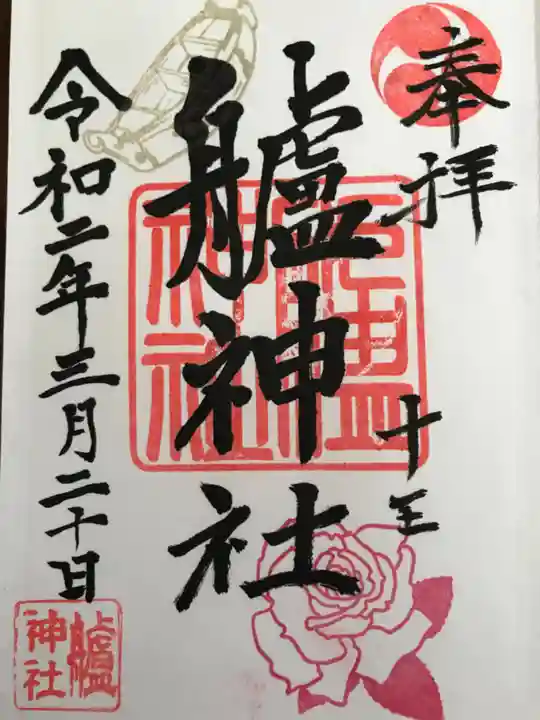 奉拝
十王
艫神社
艫神社
令和二年三月二十日
艫神社